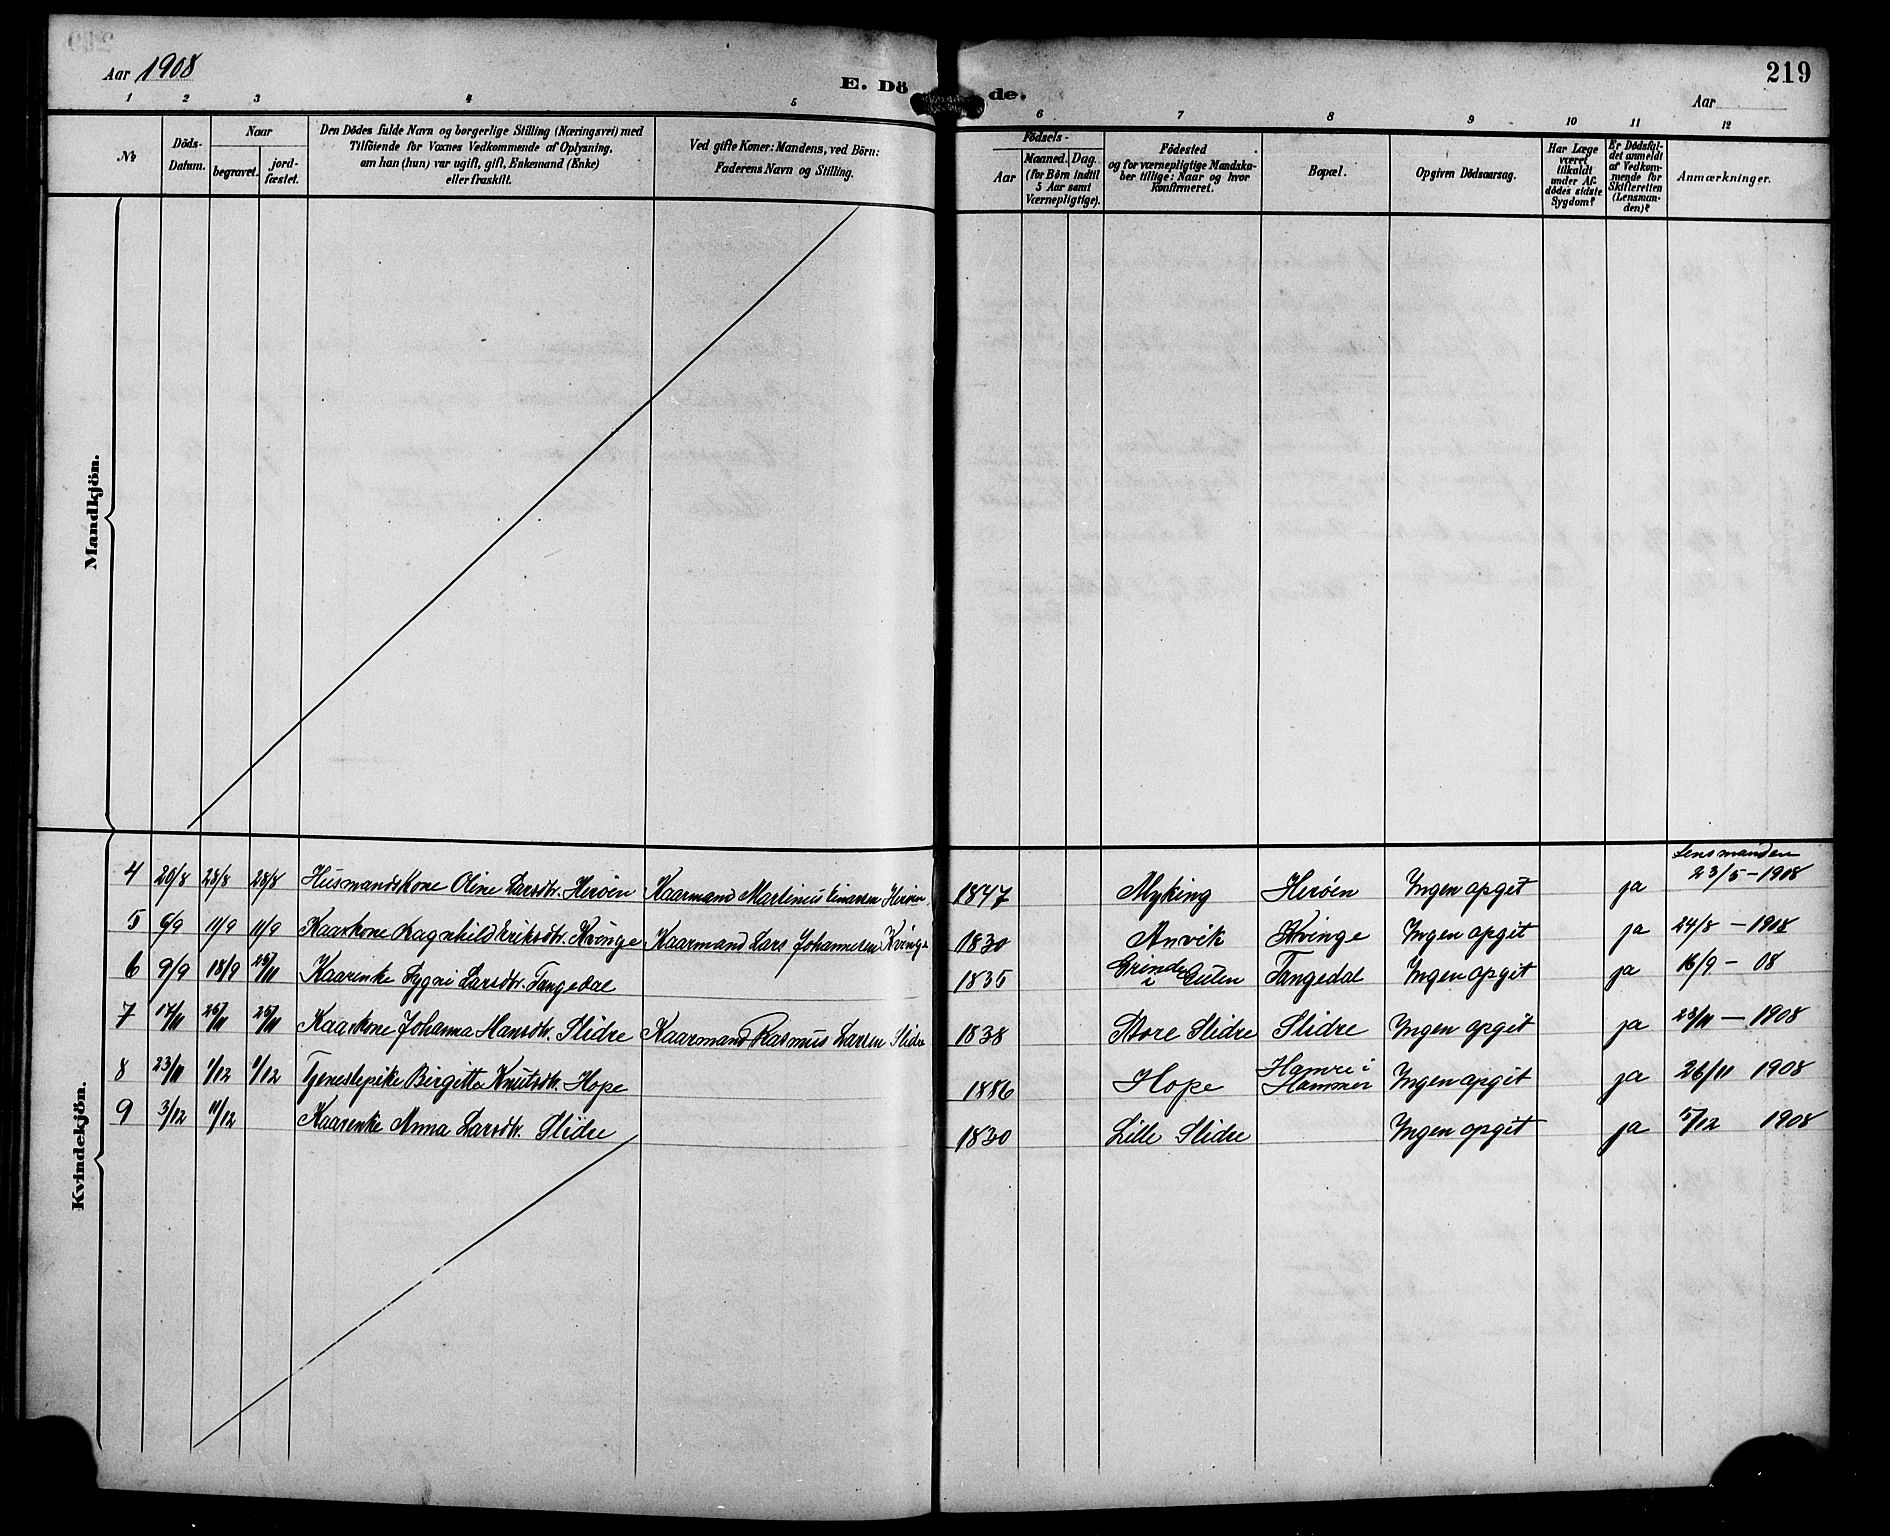 Aar 1908
E. Döde.
219
Aar
1 2 3 4 5 6 7 8 9 10 11 12
No.
Döds-Datum.
Naar
begravet.
jord-fæstet.
Den Dödes fulde Navn og borgerlige Stilling (Næringsvei) med
Tilföiende for Voxnes Vedkommende af Oplysning,
om han (hun) var ugift, gift, Enkemand (Enke)
eller fraskilt.
Ved gifte Koner: Mandens, ved Börn:
Faderens Navn og Stilling.
Födsels-
Aar
Maaned. Dag.
(for Börn indtil
5 Aar samt
Værnepligtige).
Födested
og for værnepligtige Mandska-
ber tillige: Naar og hvor
konfirmeret.
Bopæl.
Opgiven Dödsaarsag.
Har Læge
været
tilkaldt
under Af-
dödes sidste
Sygdom?
Er Dödsfal-
det anmeldt
af Vedkom-
mende for
Skifteretten
(Lensman-
den)?
Anmærkninger.
Mandkjön.
Kvindekjön.
4 20/8 28/8 28/8 Husmandskone Oline Larsdtr. Heröen Kaarmand Martinus Einarsen Heröen 1847 Myking Heröen Ingen opgit ja Lensmanden 23/5 - 1908
5 6/9 11/9 11/9 Kaarkone Ragnhild Eriksdtr. Kvinge Kaarmand Lars Johannesen Kvinge 1830 Anvik Kvinge Ingen opgit ja 24/8 - 1908
6 9/9 18/9 25/11 Kaarenke Sygni Larsdtr. Tangedal 1835 Grinde i Gulen Tangedal Ingen opgit ja 16/9 - 08
7 17/11 25/11 25/11 Kaarkone Johanna Hansdtr. Slidre Kaarmand Rasmus Larsen Slidre 1838 Store Slidre Slidre Ingen opgit ja 23/11 - 1908
8 23/11 1/12 1/12 Tjenestepike Birgitta Knutsdtr. Hope 1886 Hope Hamre i Hammer Ingen opgit ja 26/11 1908
9 3/12 11/12 Kaarenke Anna Larsdtr. Slidre 1830 Lille Slidre Ingen opgit ja 5/12 1908